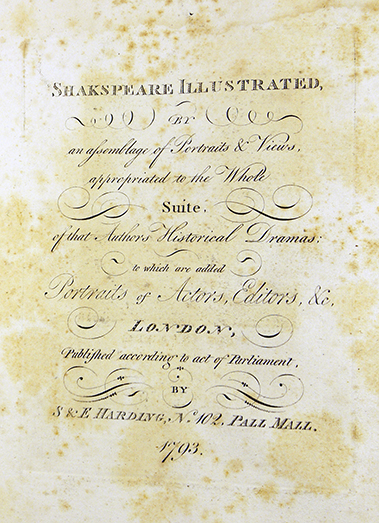 SHAKSPEARE ILLUSTRATED,
BY
an aſsemblage of Portraits & Views,
appropriated to the Whole
Suite.
of that Authors Historical Dramas:
to which are added
Portraits of Actors, Editors, &c,
LONDON,
Published according to act of Parliament,
BY
S & E HARDING, No. 102, PALL MALL.
1793.